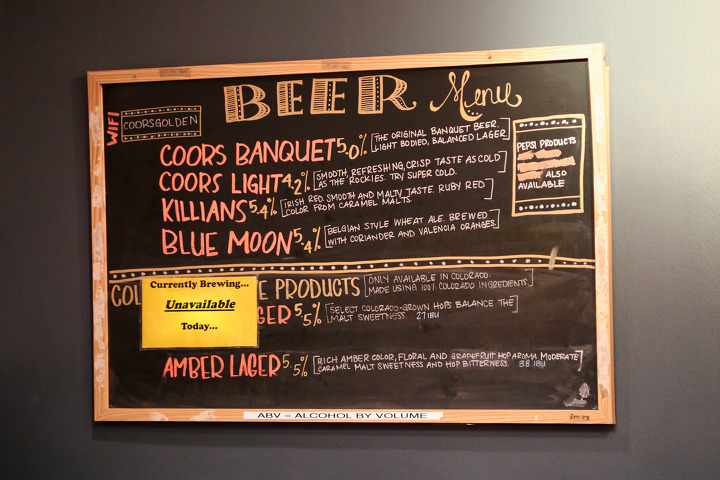 BEER Menu
WIFI
COORSGOLDEN
COORS BANQUET 5.0%
THE ORIGINAL BANQUET BEER.
LIGHT BODIED, BALANCED LAGER
COORS LIGHT 4.2%
SMOOTH, REFRESHING, CRISP TASTE AS COLD
AS THE ROCKIES. TRY SUPER COLD.
KILLIANS 5.4%
IRISH RED. SMOOTH AND MALTY TASTE. RUBY RED
COLOR FROM CARAMEL MALTS.
BLUE MOON 5.4%
BELGIAN STYLE WHEAT ALE. BREWED
WITH CORIANDER AND VALENCIA ORANGES.
PEPSI PRODUCTS
ALSO
AVAILABLE
COL
E PRODUCTS
ONLY AVAILABLE IN COLORADO.
MADE USING 100% COLORADO INGREDIENTS.
Currently Brewing...
Unavailable
Today...
GER 5.5%
SELECT COLORADO-GROWN HOPS BALANCE THE
MALT SWEETNESS. 27 IBU
AMBER LAGER 5.5%
RICH AMBER COLOR, FLORAL AND GRAPEFRUIT HOP AROMA MODERATE
CARAMEL MALT SWEETNESS AND HOP BITTERNESS. 38 IBU
ABV = ALCOHOL BY VOLUME